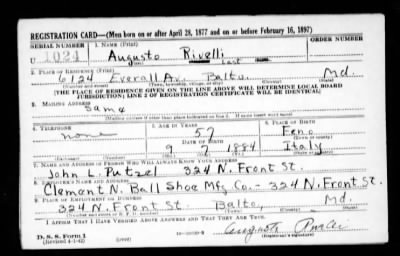 REGISTRATION CARD—(Men born on or after April 28, 1877 and on or before February 16, 1897)
SERIAL NUMBER 1. NAME (Print) ORDER NUMBER
U 1024 Augusto Rivelli
(First) (Middle) (Last)
2. PLACE OF RESIDENCE (Print)
6124 Everall Av. Balto. Md.
(Number and street) (Town, township, village, or city) (County) (State)
[THE PLACE OF RESIDENCE GIVEN ON THE LINE ABOVE WILL DETERMINE LOCAL BOARD
JURISDICTION; LINE 2 OF REGISTRATION CERTIFICATE WILL BE IDENTICAL]
3. MAILING ADDRESS
Same
[Mailing address if other than place indicated on line 2. If same insert word same]
4. TELEPHONE 5. AGE IN YEARS 6. PLACE OF BIRTH
none 57 Feno
DATE OF BIRTH (Town or county)
9 7 1884 Italy
(Exchange) (Number) (Mo.) (Day) (Yr.) (State or country)
7. NAME AND ADDRESS OF PERSON WHO WILL ALWAYS KNOW YOUR ADDRESS
John L. Putzel 324 N. Front St.
8. EMPLOYER'S NAME AND ADDRESS
Clement N. Ball Shoe Mfg Co.- 324 N. Front St.
9. PLACE OF EMPLOYMENT OR BUSINESS
324 N. Front St. Balto, Md.
(Number and street or R. F. D. number) (Town) (County) (State)
I AFFIRM THAT I HAVE VERIFIED ABOVE ANSWERS AND THAT THEY ARE TRUE.
D. S. S. Form 1
(Revised 4-1-42) (over) Augusto Rivelli
(Registrant's signature)